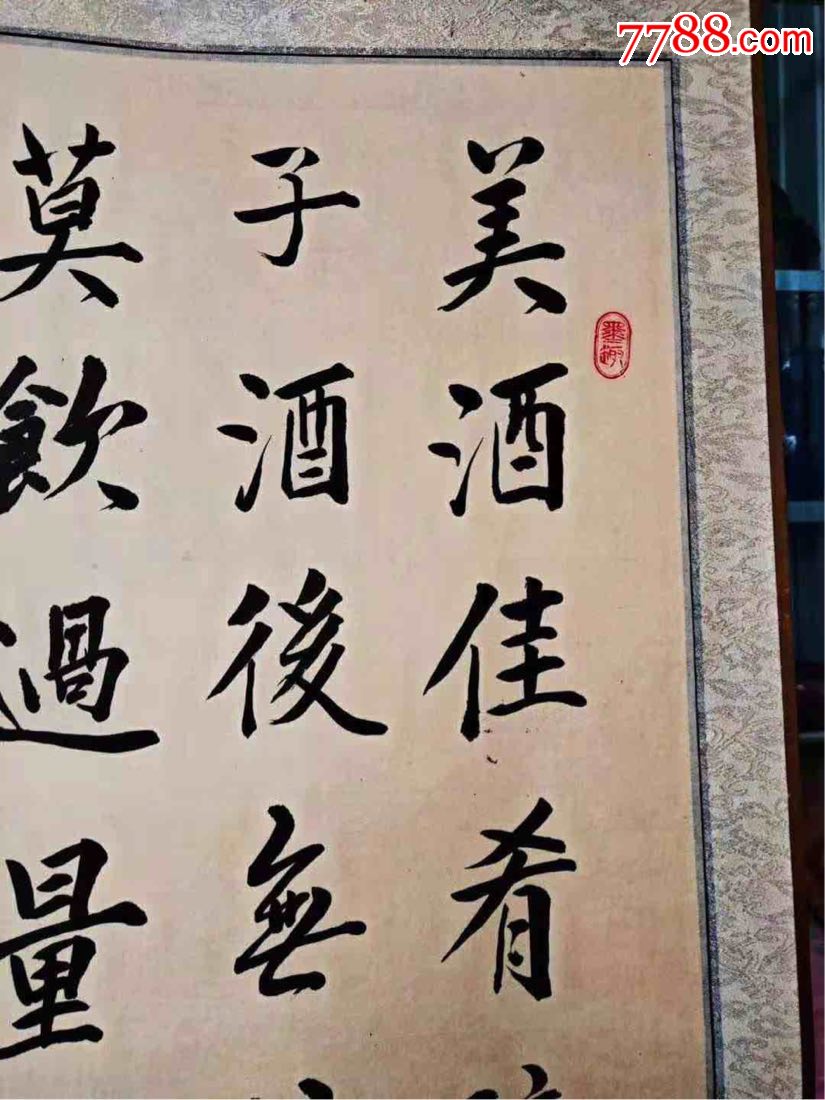 7788.com
美酒佳肴
子酒後無
莫飲過量
墨趣